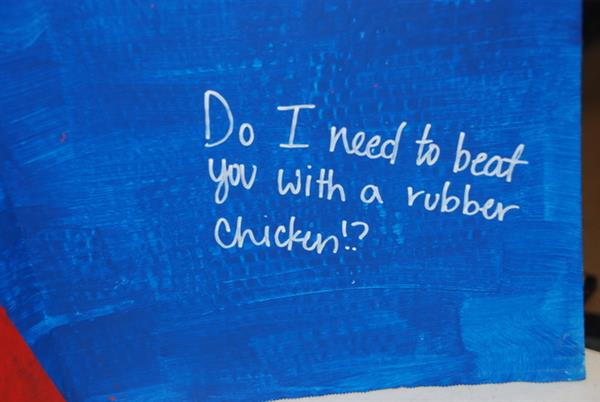 Do I need to beat
you with a rubber
chicken!?